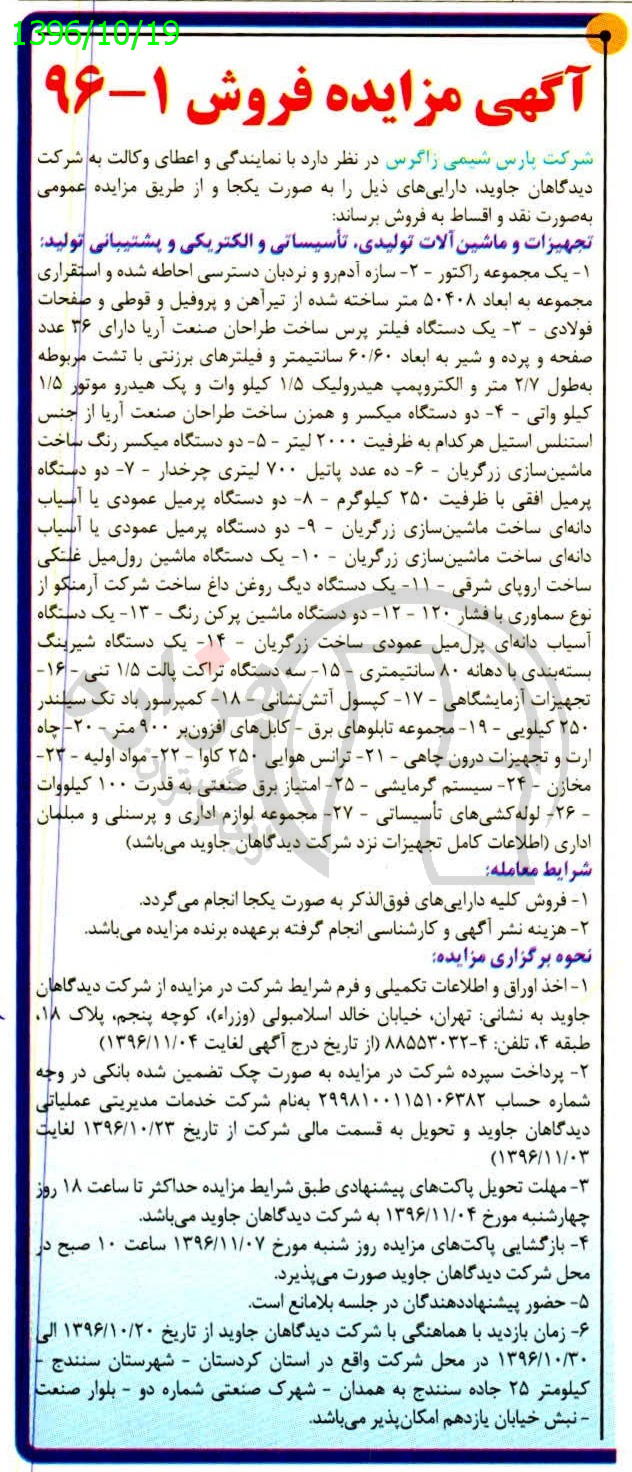 1396/10/19
آگهی مزایده فروش ۱-۹۶
شرکت پارس شیمی زاگرس در نظر دارد با نمایندگی و اعطای وکالت به شرکت
دیدگاهان جاوید، دارایی‌های ذیل را به صورت یکجا و از طریق مزایده عمومی
به‌صورت نقد و اقساط به فروش برساند:
تجهیزات و ماشین‌آلات تولیدی، تأسیساتی و الکتریکی و پشتیبانی تولید:
۱- یک مجموعه راکتور - ۲- سازه آدم‌رو و نردبان دسترسی احاطه شده و استقراری
مجموعه به ابعاد ۵۰۴۰۸ متر ساخته شده از تیرآهن و پروفیل و قوطی و صفحات
فولادی - ۳- یک دستگاه فیلتر پرس ساخت طراحان صنعت آریا دارای ۳۶ عدد
صفحه و پرده و شیر به ابعاد ۶۰/۶۰ سانتیمتر و فیلترهای برزنتی با تشت مربوطه
به‌طول ۲/۷ متر و الکتروپمپ هیدرولیک ۱/۵ کیلو وات و پک هیدرو موتور ۱/۵
کیلو واتی - ۴- دو دستگاه میکسر و همزن ساخت طراحان صنعت آریا از جنس
استنلس استیل هرکدام به ظرفیت ۲۰۰۰ لیتر - ۵- دو دستگاه میکسر رنگ ساخت
ماشین‌سازی زرگریان - ۶- ده عدد پاتیل ۷۰۰ لیتری چرخدار - ۷- دو دستگاه
پرمیل افقی با ظرفیت ۲۵۰ کیلوگرم - ۸- دو دستگاه پرمیل عمودی یا آسیاب
دانه‌ای ساخت ماشین‌سازی زرگریان - ۹- دو دستگاه پرمیل عمودی یا آسیاب
دانه‌ای ساخت ماشین‌سازی زرگریان - ۱۰- یک دستگاه ماشین رول‌میل غلتکی
ساخت اروپای شرقی - ۱۱- یک دستگاه دیگ روغن داغ ساخت شرکت آرمنکو از
نوع سماوری با فشار ۱۲۰ - ۱۲- دو دستگاه ماشین پرکن رنگ - ۱۳- یک دستگاه
آسیاب دانه‌ای پرل‌میل عمودی ساخت زرگریان - ۱۴- یک دستگاه شیرینگ
بسته‌بندی با دهانه ۸۰ سانتیمتری - ۱۵- سه دستگاه تراکت پالت ۱/۵ تنی - ۱۶-
تجهیزات آزمایشگاهی - ۱۷- کپسول آتش‌نشانی - ۱۸- کمپرسور باد تک سیلندر
۲۵۰ کیلویی - ۱۹- مجموعه تابلوهای برق - کابل‌های افزون‌بر ۹۰۰ متر - ۲۰- چاه
ارت و تجهیزات درون چاهی - ۲۱- ترانس هوایی ۲۵۰ کاوا - ۲۲- مواد اولیه - ۲۳-
مخازن - ۲۴- سیستم گرمایشی - ۲۵- امتیاز برق صنعتی به قدرت ۱۰۰ کیلووات
- ۲۶- لوله‌کشی‌های تأسیساتی - ۲۷- مجموعه لوازم اداری و پرسنلی و مبلمان
اداری (اطلاعات کامل تجهیزات نزد شرکت دیدگاهان جاوید می‌باشد)
شرایط معامله:
۱- فروش کلیه دارایی‌های فوق‌الذکر به صورت یکجا انجام می‌گردد.
۲- هزینه نشر آگهی و کارشناسی انجام گرفته برعهده برنده مزایده می‌باشد.
نحوه برگزاری مزایده:
۱- اخذ اوراق و اطلاعات تکمیلی و فرم شرایط شرکت در مزایده از شرکت دیدگاهان
جاوید به نشانی: تهران، خیابان خالد اسلامبولی (وزراء)، کوچه پنجم، پلاک ۱۸،
طبقه ۴، تلفن: ۴-۸۸۵۵۳۰۳۲ (از تاریخ درج آگهی لغایت ۱۳۹۶/۱۱/۰۴)
۲- پرداخت سپرده شرکت در مزایده به صورت چک تضمین شده بانکی در وجه
شماره حساب ۲۹۹۸۱۰۰۱۱۵۱۰۶۳۸۲ به‌نام شرکت خدمات مدیریتی عملیاتی
دیدگاهان جاوید و تحویل به قسمت مالی شرکت از تاریخ ۱۳۹۶/۱۰/۲۳ لغایت
۱۳۹۶/۱۱/۰۳)
۳- مهلت تحویل پاکت‌های پیشنهادی طبق شرایط مزایده حداکثر تا ساعت ۱۸ روز
چهارشنبه مورخ ۱۳۹۶/۱۱/۰۴ به شرکت دیدگاهان جاوید می‌باشد.
۴- بازگشایی پاکت‌های مزایده روز شنبه مورخ ۱۳۹۶/۱۱/۰۷ ساعت ۱۰ صبح در
محل شرکت دیدگاهان جاوید صورت می‌پذیرد.
۵- حضور پیشنهاددهندگان در جلسه بلامانع است.
۶- زمان بازدید با هماهنگی با شرکت دیدگاهان جاوید از تاریخ ۱۳۹۶/۱۰/۲۰ الی
۱۳۹۶/۱۰/۳۰ در محل شرکت واقع در استان کردستان - شهرستان سنندج -
کیلومتر ۲۵ جاده سنندج به همدان - شهرک صنعتی شماره دو - بلوار صنعت
- نبش خیابان یازدهم امکان‌پذیر می‌باشد.